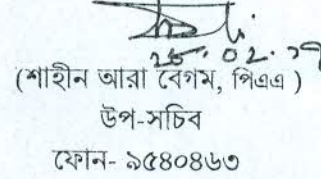 ২৫.০২.১৭
(শাহীন আরা বেগম, পিএএ )
উপ-সচিব
ফোন- ৯৫৪০৪৬৩